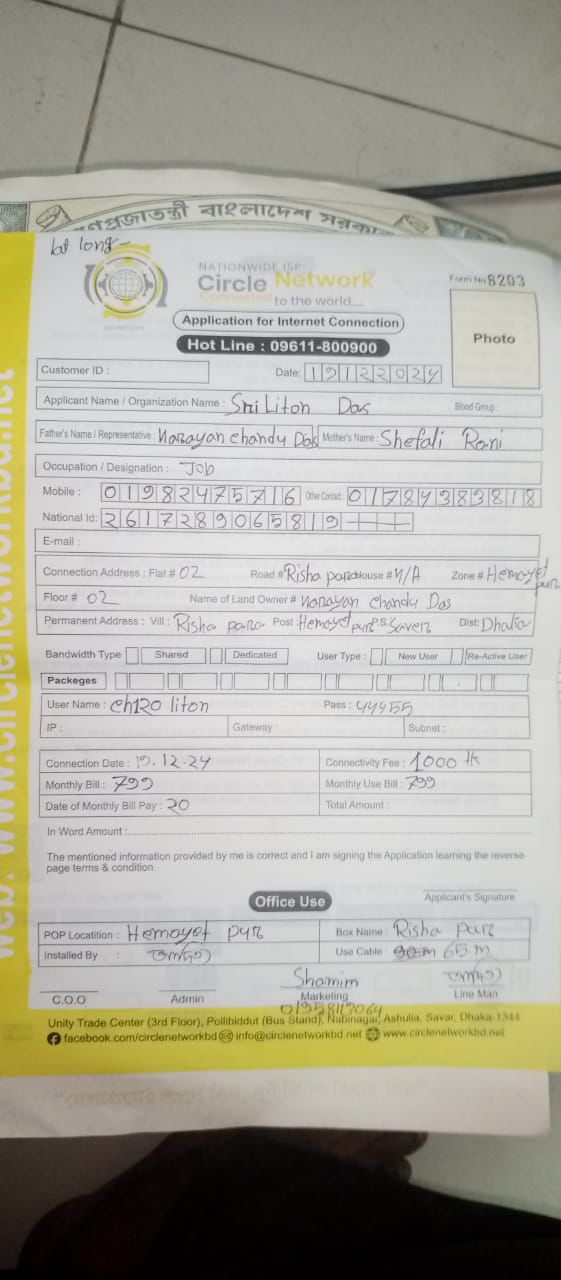 গণপ্রজাতন্ত্রী বাংলাদেশ সরকার
lat long
NATIONWIDE ISP
Circle Network
Connected to the world....
Form No 8203
Application for Internet Connection
Photo
Hot Line : 09611-800900
Customer ID :
Date: 19122024
Applicant Name / Organization Name : Sri Liton Das Blood Group :
Father's Name / Representative : Narayan chandu Das Mother's Name : Shefali Rani
Occupation / Designation : Job
Mobile : 01982475716 Other Contact : 01784383818
National Id: 2617289065819
E-mail :
Connection Address : Flat # 02 Road # Risha para House # N/A Zone # Hemayet pur
Floor # 02 Name of Land Owner # Narayan chandu Das
Permanent Address : Vill : Risha para Post : Hemayet pur P.S. Saver Dist: Dhaka
Bandwidth Type Shared Dedicated User Type : New User Re-Active User
Packeges
User Name : ch120 liton Pass : 44455
IP : Gateway : Subnet :
Connection Date : 19.12.24 Connectivity Fee : 1000 tk
Monthly Bill : 799 Monthly Use Bill : 799
Date of Monthly Bill Pay : 20 Total Amount :
In Word Amount :
The mentioned information provided by me is correct and I am signing the Application learning the reverse
page terms & condition.
Applicant's Signature
Office Use
POP Locatition : Hemayet pur Box Name : Risha Para
Installed By : Use Cable : 65.m
Shamim
C.O.O Admin Marketing Line Man
Unity Trade Center (3rd Floor), Pollibiddut (Bus Stand), Nabinagar, Ashulia, Savar, Dhaka-1344
facebook.com/circlenetworkbd info@circlenetworkbd.net www.circlenetworkbd.net
web: www.circlenetworkbd.net